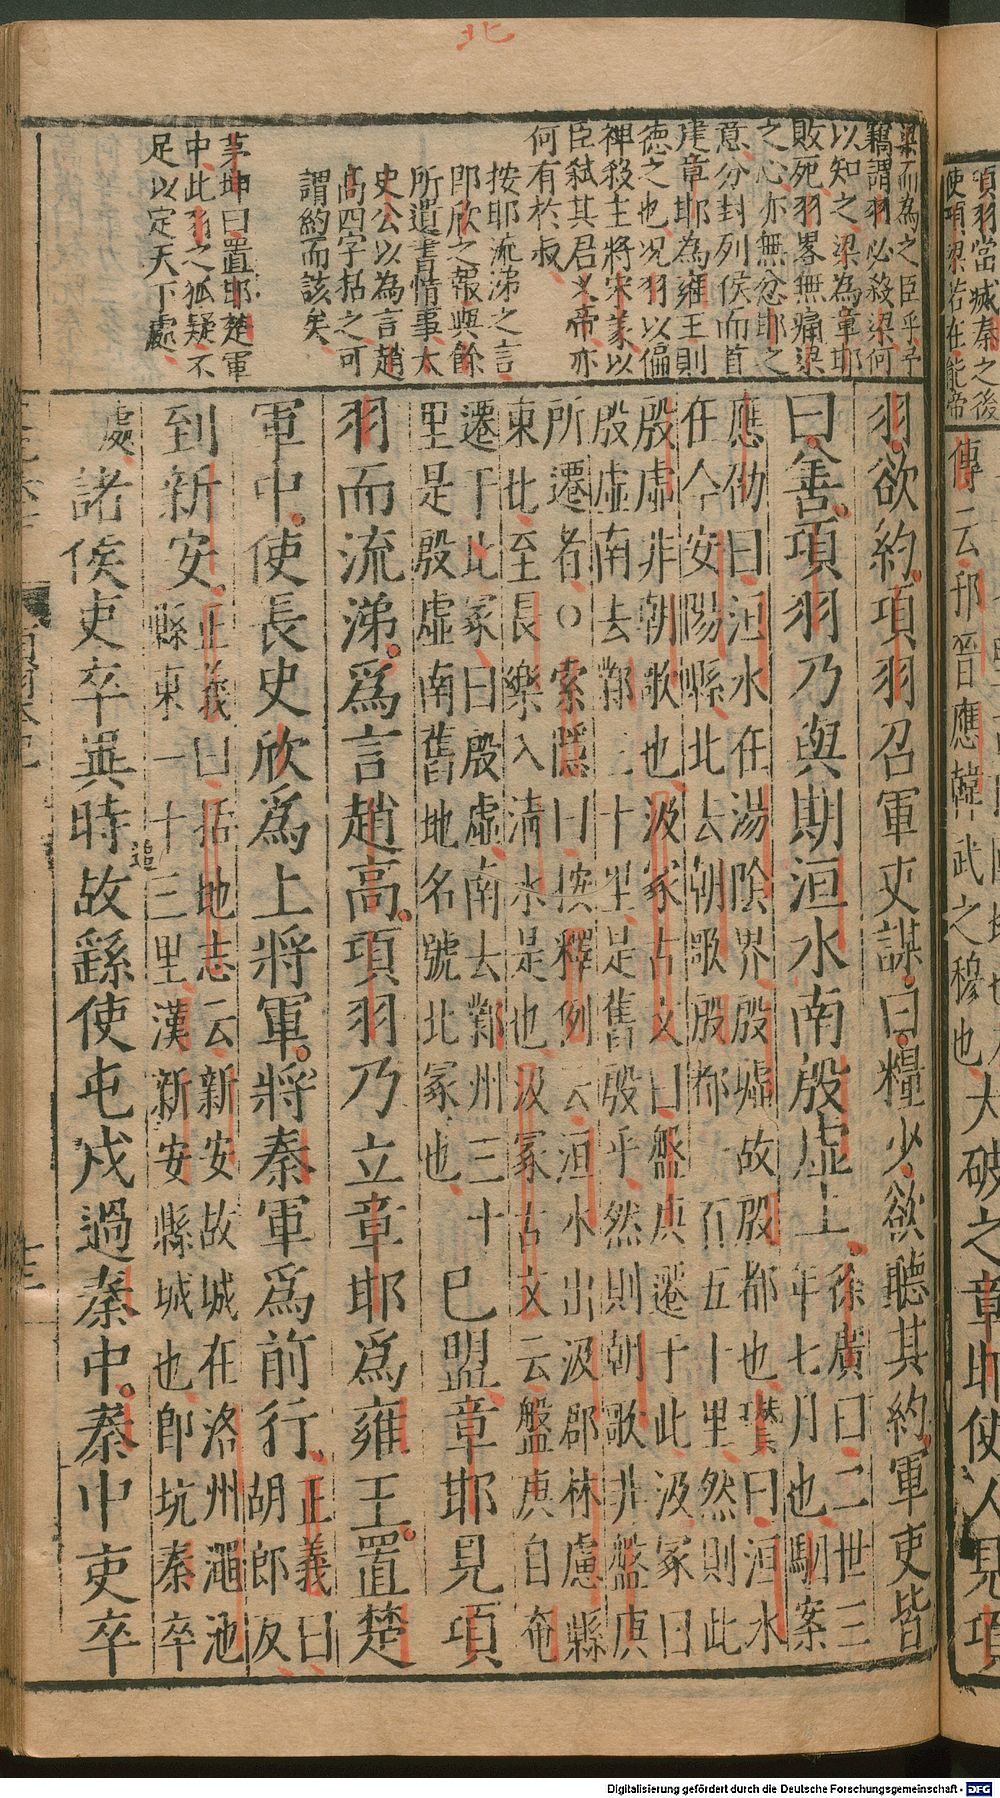 北
項羽當滅秦之後
使項梁若在能帝
傳云邘晉應韓武之穆也大破之章邯使人見項
梁而為之臣乎予
竊謂羽必殺梁何
以知之梁為章邯
敗死羽畧無痛梁
之心亦無忿邯之
意分封列侯而首
建章邯為雍王則
德之也况羽以偏
裨殺主將宋義以
臣弑其君义帝亦
何有於叔
按耶流涕之言
即欣之報與餘
所遺書情事太
史公以為言趙
高四字括之可
謂約而該矣
茅坤曰置邯楚軍
中此羽之狐疑不
足以定天下處
羽欲約項羽召軍吏謀曰糧少欲聽其約軍吏皆
曰善項羽乃與期洹水南殷虛上
徐廣曰二世三
年七月也駰案
應劭曰洹水在湯陰界殷墟故殷都也瓚曰洹水
在今安陽縣北去朝歌殷都一百五十里然則此
殷虛非朝歌也汲冢古文曰盤庚遷于此汲冢曰
殷虛南去鄴三十里是舊殷乎然則朝歌非盤庚
所遷者○索隱曰按釋例云洹水出汲郡林慮縣
東北至長樂入清水是也汲冢古文云盤庚自奄
遷于此冢曰殷虛南去鄴州三十
里是殷虛南舊地名號北冢也
已盟章耶見項
羽而流涕爲言趙高項羽乃立章耶爲雍王置楚
軍中使長史欣爲上將軍將秦軍爲前行
正義曰
胡郎反
到新安
正義曰括地志云新安故城在洛州澠池
縣東一十三里漢新安縣城也即坑秦卒
處諸侯吏卒異時故繇使屯戍過秦中秦中吏卒
項羽本紀
Digitalisierung gefördert durch die Deutsche Forschungsgemeinschaft - DFG